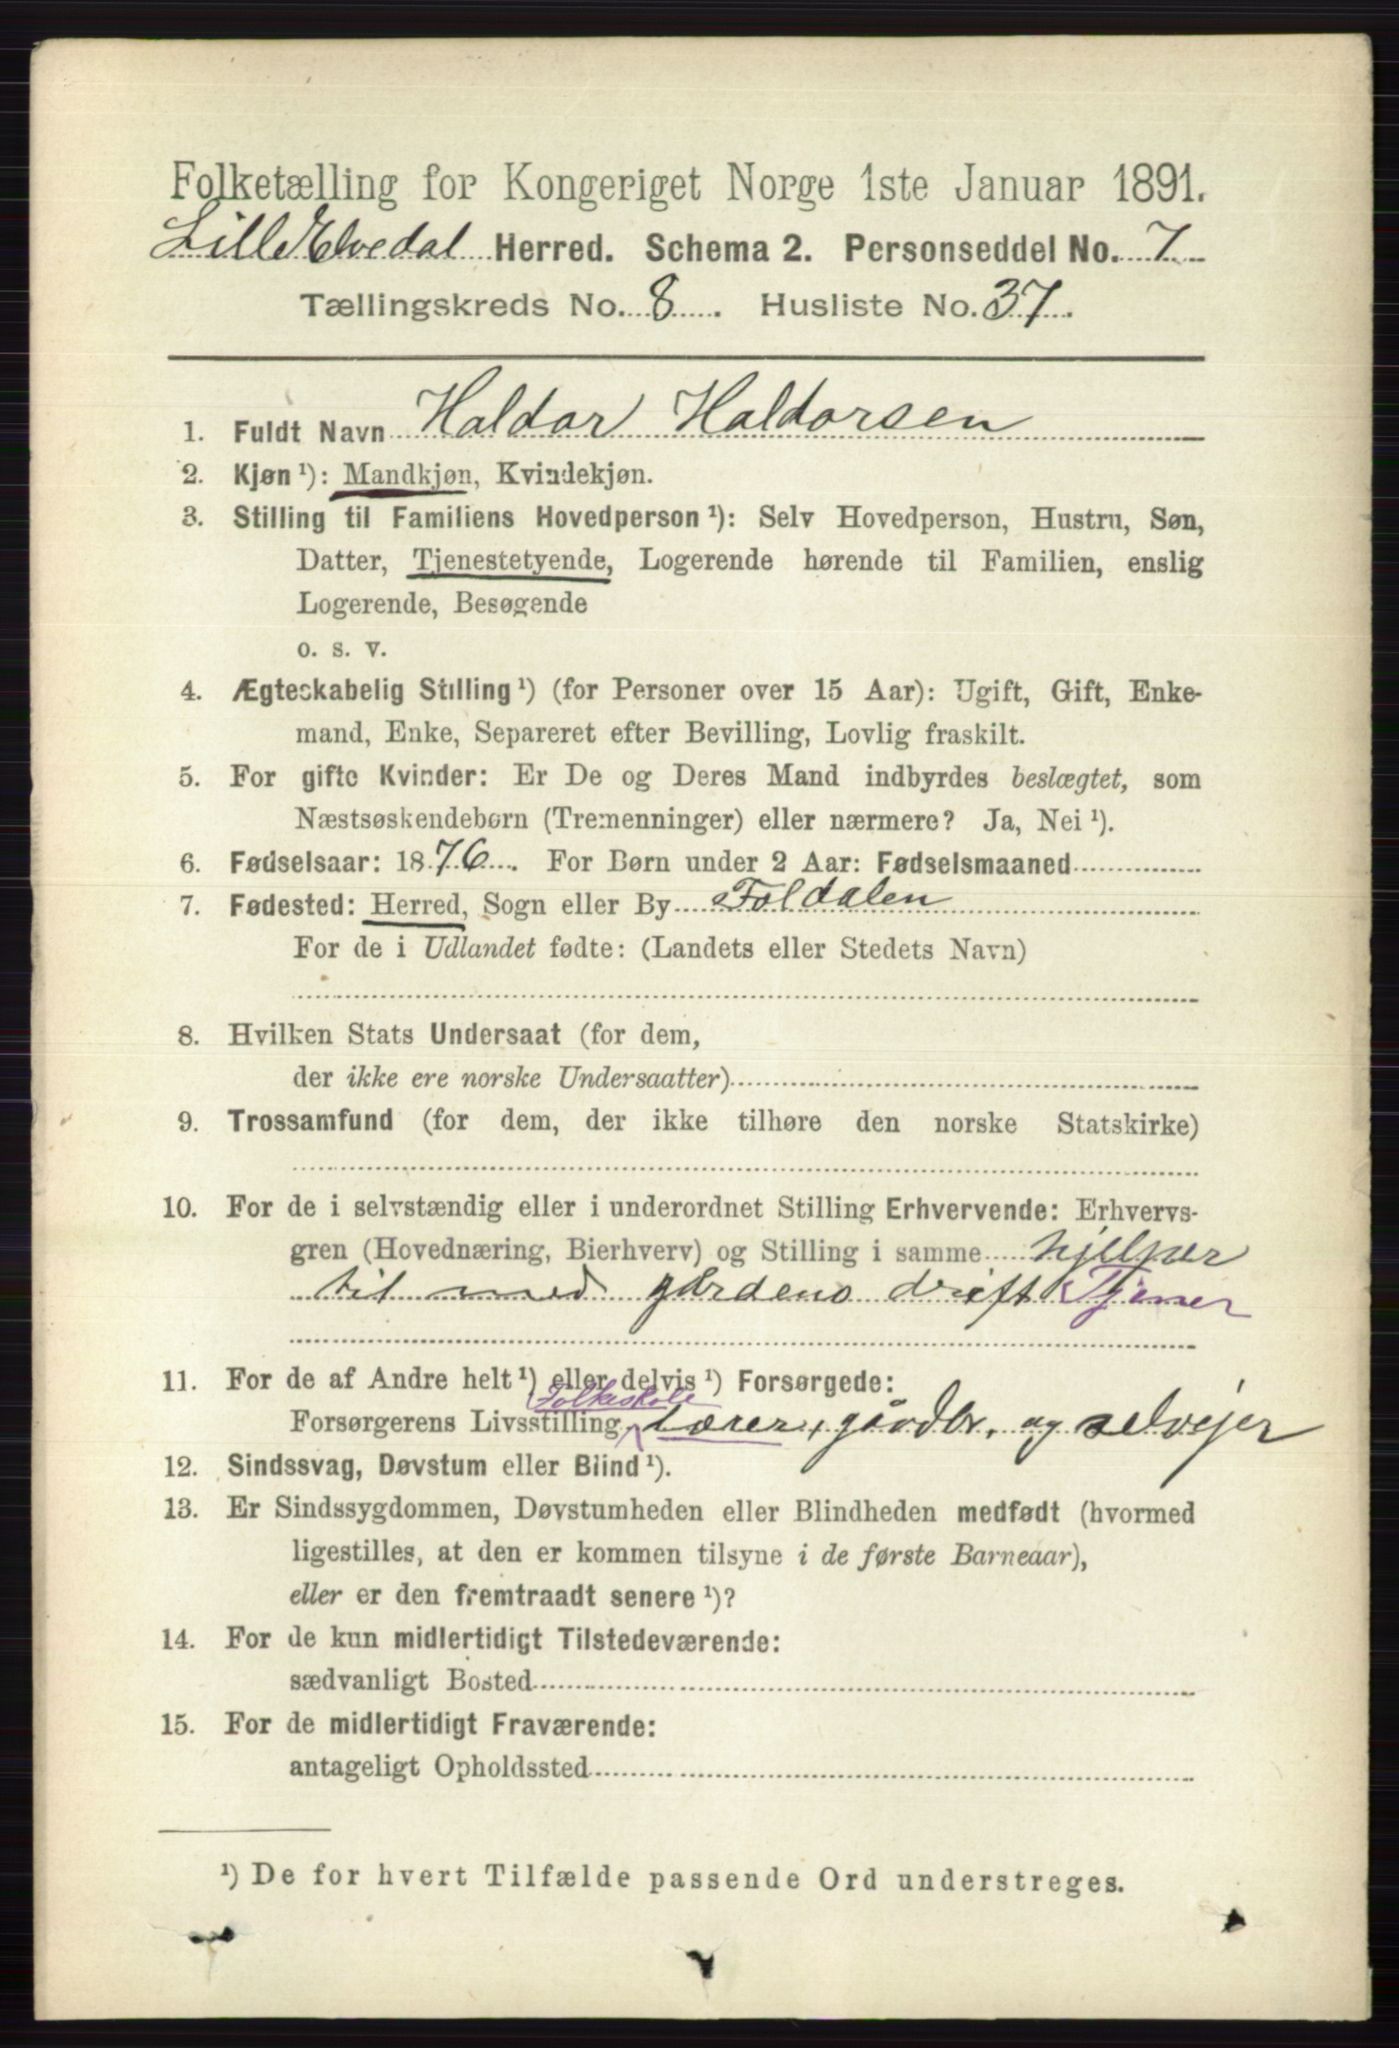 Folketælling for Kongeriget Norge 1ste Januar 1891.
Lille Elvedal Herred. Schema 2. Personseddel No. 7
Tællingskreds No. 8. Husliste No. 37.
1. Fuldt Navn Haldor Haldorsen
2. Kjøn ¹): Mandkjøn, Kvindekjøn.
3. Stilling til Familiens Hovedperson ¹): Selv Hovedperson, Hustru, Søn,
Datter, Tjenestetyende, Logerende hørende til Familien, enslig
Logerende, Besøgende
o. s. v.
4. Ægteskabelig Stilling ¹) (for Personer over 15 Aar): Ugift, Gift, Enke-
mand, Enke, Separeret efter Bevilling, Lovlig fraskilt.
5. For gifte Kvinder: Er De og Deres Mand indbyrdes beslægtet, som
Næstsøskendebørn (Tremenninger) eller nærmere? Ja, Nei ¹).
6. Fødselsaar: 1876. For Børn under 2 Aar: Fødselsmaaned
7. Fødested: Herred, Sogn eller By Foldalen
For de i Udlandet fødte: (Landets eller Stedets Navn)
8. Hvilken Stats Undersaat (for dem,
der ikke ere norske Undersaatter)
9. Trossamfund (for dem, der ikke tilhøre den norske Statskirke)
10. For de i selvstændig eller i underordnet Stilling Erhvervende: Erhvervs-
gren (Hovednæring, Bierhverv) og Stilling i samme hjelper
til med gårdens drift Tjener
11. For de af Andre helt ¹) eller delvis ¹) Forsørgede:
Folkeskole
Forsørgerens Livsstilling, lærer, gårdbr. og selvejer
12. Sindssvag, Døvstum eller Blind ¹).
13. Er Sindssygdommen, Døvstumheden eller Blindheden medfødt (hvormed
ligestilles, at den er kommen tilsyne i de første Barneaar),
eller er den fremtraadt senere ¹)?
14. For de kun midlertidigt Tilstedeværende:
sædvanligt Bosted
15. For de midlertidigt Fraværende:
antageligt Opholdssted
¹) De for hvert Tilfælde passende Ord understreges.